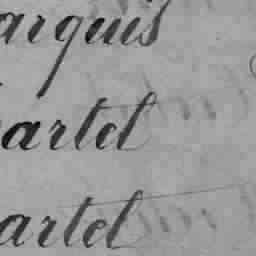 arquis
artel
artel